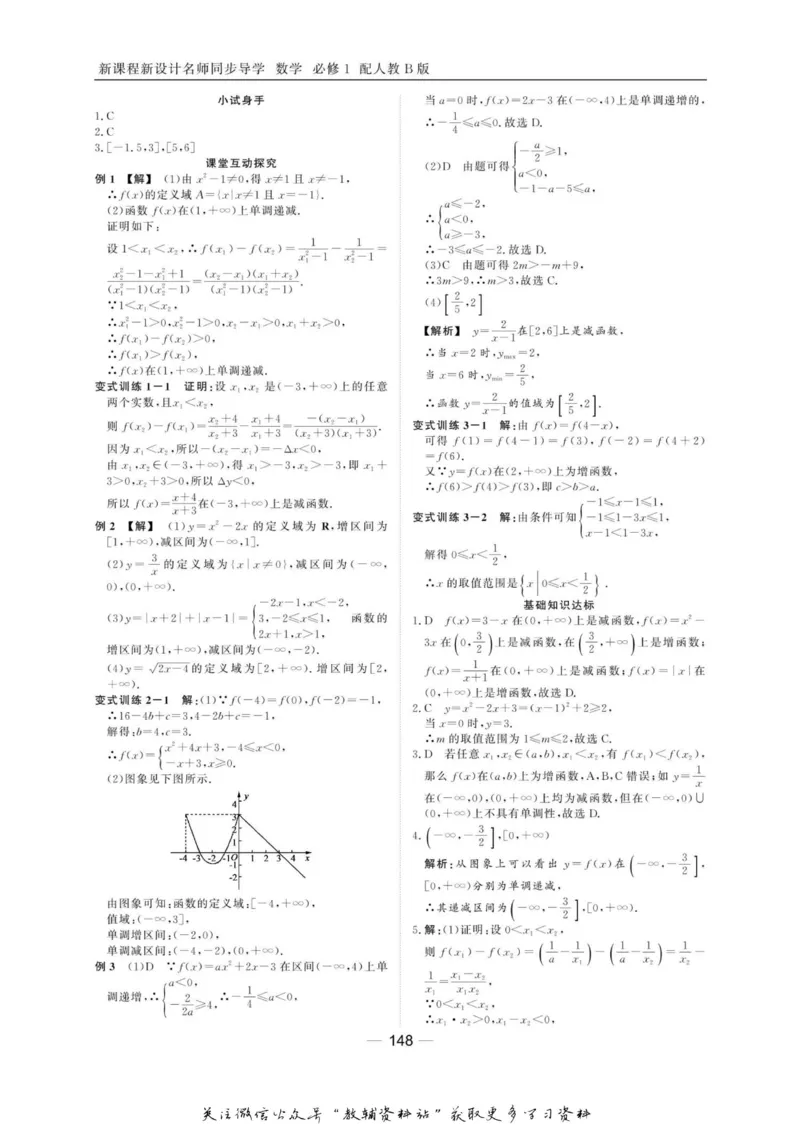 新课程新设计名师同步导学 数学 必修1 配人教B版
小试身手
1.C
2.C
3.[-1.5,3],[5,6]
课堂互动探究
例1 【解】 (1)由 x²-1≠0,得 x≠1 且 x≠-1,
∴f(x)的定义域 A={x|x≠1 且 x=-1}.
(2)函数 f(x)在(1,+∞)上单调递减.
证明如下:
设 1<x₁<x₂,∴f(x₁)-f(x₂)=1/(x₁²-1)-1/(x₂²-1)=
(x₂²-1-x₁²+1)/((x₁²-1)(x₂²-1))=(x₂-x₁)(x₁+x₂)/((x₁²-1)(x₂²-1)).
∵1<x₁<x₂,
∴x₁²-1>0,x₂²-1>0,x₂-x₁>0,x₁+x₂>0,
∴f(x₁)-f(x₂)>0,
∴f(x₁)>f(x₂),
∴f(x)在(1,+∞)上单调递减.
变式训练 1-1 证明:设 x₁,x₂ 是(-3,+∞)上的任意
两个实数,且x₁<x₂,
则 f(x₂)-f(x₁)=(x₂+4)/(x₂+3)-(x₁+4)/(x₁+3)=-(x₂-x₁)/((x₂+3)(x₁+3)).
因为 x₁<x₂,所以-(x₂-x₁)=-Δx<0,
由 x₁,x₂∈(-3,+∞),得 x₁>-3,x₂>-3,即 x₁+
3>0,x₂+3>0,所以 Δy<0,
所以 f(x)=(x+4)/(x+3)在(-3,+∞)上是减函数.
例2 【解】 (1)y=x²-2x 的定义域为 R,增区间为
[1,+∞),减区间为(-∞,1].
(2)y=3/x 的定义域为{x|x≠0},减区间为(-∞,
0),(0,+∞).
(3)y=|x+2|+|x-1|={-2x-1,x<-2, 3,-2≤x≤1, 2x+1,x>1, 函数的
增区间为(1,+∞),减区间为(-∞,-2).
(4)y=√(2x-4)的定义域为[2,+∞).增区间为[2,
+∞).
变式训练 2-1 解:(1)∵f(-4)=f(0),f(-2)=-1,
∴16-4b+c=3,4-2b+c=-1,
解得:b=4,c=3.
∴f(x)={x²+4x+3,-4≤x<0, -x+3,x≥0.
(2)图象见下图所示.
y
4
3
2
1
-4 -3 -2 -1 O 1 2 3 4 x
-1
-2
由图象可知:函数的定义域:[-4,+∞),
值域:(-∞,3],
单调增区间:(-2,0),
单调减区间:(-4,-2),(0,+∞).
例3 (1)D ∵f(x)=ax²+2x-3 在区间(-∞,4)上单
调递增,∴{a<0, -2/2a≥4, ∴-1/4≤a<0,
当 a=0 时,f(x)=2x-3 在(-∞,4)上是单调递增的,
∴-1/4≤a≤0.故选 D.
(2)D 由题可得{-a/2≥1, a<0, -1-a-5≤a,
∴{a≤-2, a<0, a≥-3,
∴-3≤a≤-2.故选 D.
(3)C 由题可得 2m>-m+9,
∴3m>9,∴m>3,故选 C.
(4)[2/5,2]
【解析】 y=2/(x-1)在[2,6]上是减函数,
∴当 x=2 时,yₘₐₓ=2,
当 x=6 时,yₘᵢₙ=2/5,
∴函数 y=2/(x-1)的值域为[2/5,2].
变式训练 3-1 解:由 f(x)=f(4-x),
可得 f(1)=f(4-1)=f(3),f(-2)=f(4+2)
=f(6).
又∵y=f(x)在(2,+∞)上为增函数,
∴f(6)>f(4)>f(3),即 c>b>a.
变式训练 3-2 解:由条件可知{-1≤x-1≤1, -1≤1-3x≤1, x-1<1-3x,
解得 0≤x<1/2,
∴x 的取值范围是{x|0≤x<1/2}.
基础知识达标
1.D f(x)=3-x 在(0,+∞)上是减函数,f(x)=x²-
3x 在(0,3/2)上是减函数,在(3/2,+∞)上是增函数;
f(x)=1/(x+1)在(0,+∞)上是减函数;f(x)=|x|在
(0,+∞)上是增函数,故选 D.
2.C y=x²-2x+3=(x-1)²+2≥2,
当 x=0 时,y=3.
∴m 的取值范围为 1≤m≤2,故选 C.
3.D 若任意 x₁,x₂∈(a,b),x₁<x₂,有 f(x₁)<f(x₂),
那么 f(x)在(a,b)上为增函数,A,B,C 错误;如 y=1/x
在(-∞,0),(0,+∞)上均为减函数,但在(-∞,0)∪
(0,+∞)上不具有单调性,故选 D.
4.(-∞,-3/2],[0,+∞)
解析:从图象上可以看出 y=f(x)在(-∞,-3/2],
[0,+∞)分别为单调递减,
∴其递减区间为(-∞,-3/2],[0,+∞).
5.解:(1)证明:设 0<x₁<x₂,
则 f(x₁)-f(x₂)=(1/a-1/x₁)-(1/a-1/x₂)=1/x₂-
1/x₁=(x₁-x₂)/(x₁x₂),
∵0<x₁<x₂,
∴x₁·x₂>0,x₁-x₂<0,
— 148 —
关注微信公众号"教辅资料站"获取更多学习资料